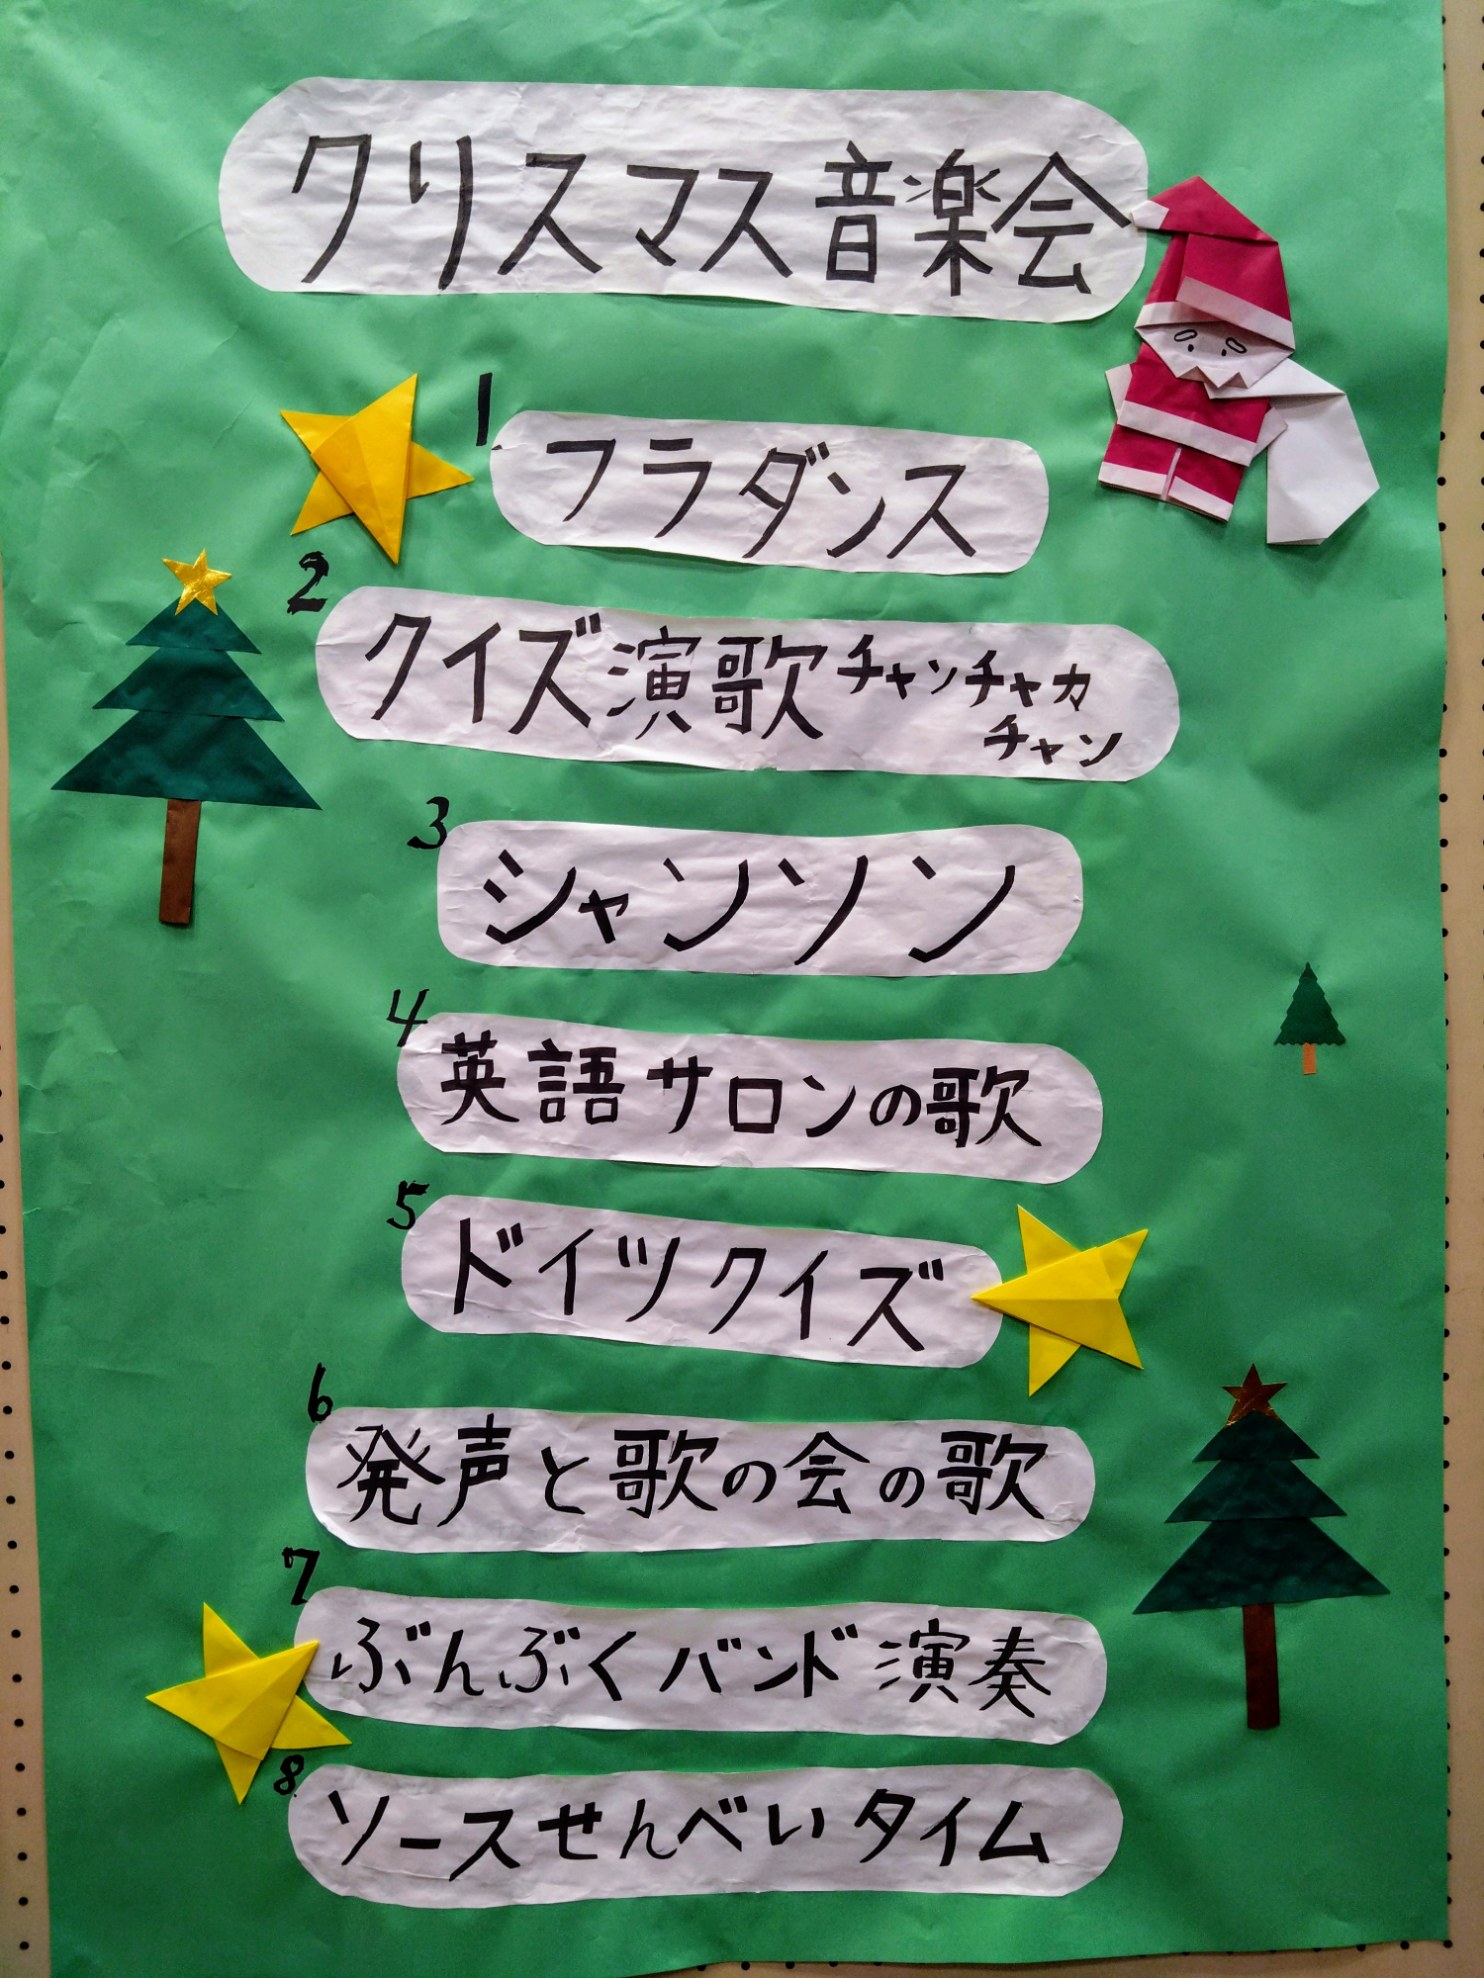 クリスマス音楽会
1 フラダンス
2 クイズ演歌チャンチャカ
チャン
3 シャンソン
4 英語サロンの歌
5 ドイツクイズ
6 発声と歌の会の歌
7 ぶんぶくバンド演奏
8 ソースせんべいタイム